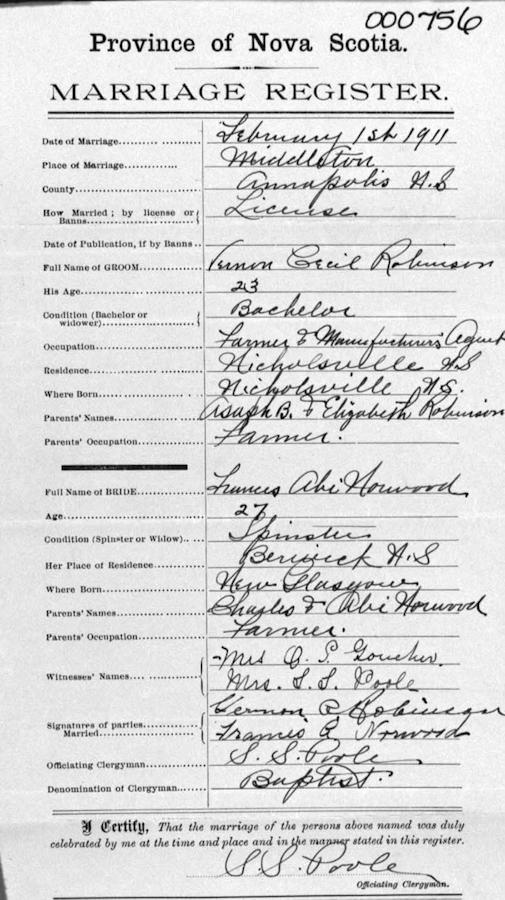 000756
Province of Nova Scotia.
MARRIAGE REGISTER.
Date of Marriage.................. February 1st 1911
Place of Marriage............. Middleton
County............................... Annapolis N.S
How Married; by license or Banns.. License
Date of Publication, if by Banns..
Full Name of GROOM............... Vernon Cecil Robinson
His Age............................ 23
Condition (Bachelor or widower)...................... Bachelor
Occupation........................ Farmer & Manufacturers Agent
Residence......................... Nicholsville N.S
Where Born....................... Nicholsville N.S.
Parents' Names................... Asaph B. & Elizabeth Robinson
Parents' Occupation.............. Farmer.
Full Name of BRIDE............... Frances Abi Norwood
Age................................ 27
Condition (Spinster or Widow).... Spinster
Her Place of Residence........... Berwick N.S
Where Born....................... New Glasgow
Parents' Names................... Charles & Abi Norwood
Parents' Occupation.............. Farmer.
Witnesses' Names.... Mrs Goucher.
Mrs. S. S. Poole
Signatures of parties Married........ Vernon C Robinson
Frances A Norwood
Officiating Clergyman............ S. S. Poole
Denomination of Clergyman....... Baptist.
I Certify, That the marriage of the persons above named was duly
celebrated by me at the time and place and in the manner stated in this register.
S. S. Poole
Officiating Clergyman.